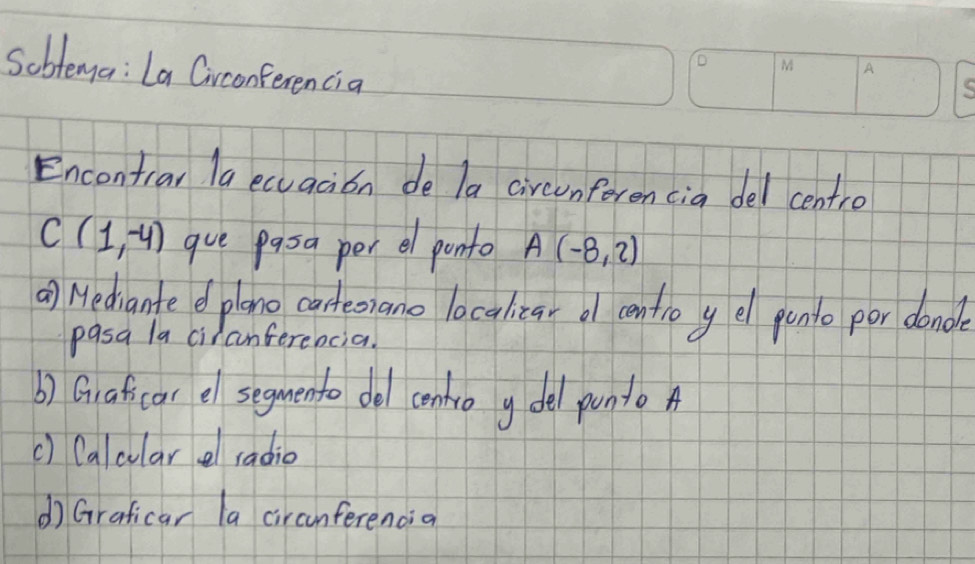 Subtema: La Circonferencia
D M A S
Encontrar la ecuación de la circunferencia del centro
C (1,-4) que pasa por el punto A (-8,2)
a) Mediante el plano cartesiano localizar el centro y el punto por donde
pasa la circunferencia.
b) Graficar el segmento del centro y del punto A
c) Calcular el radio
d) Graficar la circunferencia